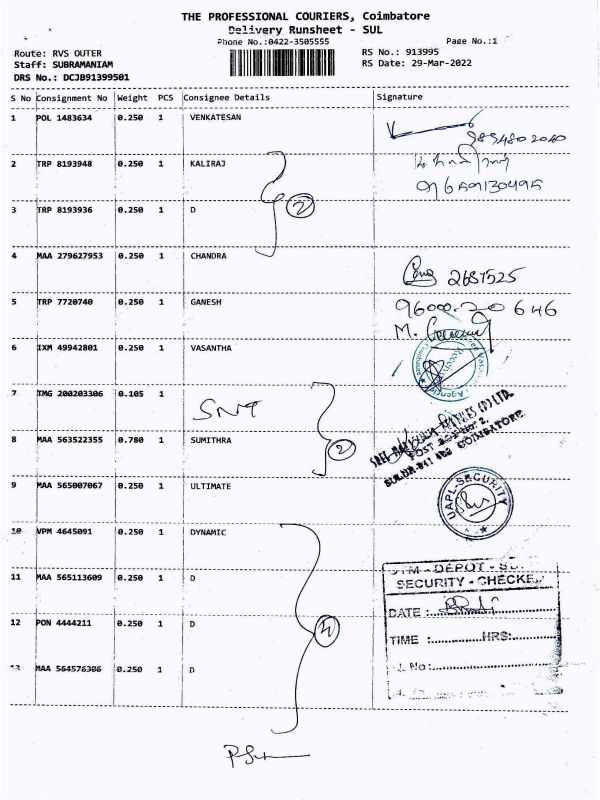 THE PROFESSIONAL COURIERS, Coimbatore
Delivery Runsheet - SUL
Phone No.:0422-3505555
Page No.:1
Route: RVS OUTER
RS No.: 913995
Staff: SUBRAMANIAM
RS Date: 29-Mar-2022
DRS No.: DCJB91399501
S No Consignment No Weight PCS Consignee Details Signature
1 POL 1483634 0.250 1 VENKATESAN
2 TRP 8193948 0.250 1 KALIRAJ
9659130495
3 TRP 8193936 0.250 1 D
2
4 MAA 279627953 0.250 1 CHANDRA
2687525
5 TRP 7720740 0.250 1 GANESH
9600020646
6 IXM 49942801 0.250 1 VASANTHA
7 TMG 200203306 0.105 1
SNT
8 MAA 563522355 0.780 1 SUMITHRA
2
POST BOX NO. 2,
COIMBATORE
9 MAA 565007067 0.250 1 ULTIMATE
UAPL-SECURITY
10 VPM 4645091 0.250 1 DYNAMIC
11 MAA 565113609 0.250 1 D
DEPOT
SECURITY - CHECKE
12 PON 4444211 0.250 1 D
DATE :
TIME : HRS:
13 MAA 564576306 0.250 1 D
No: